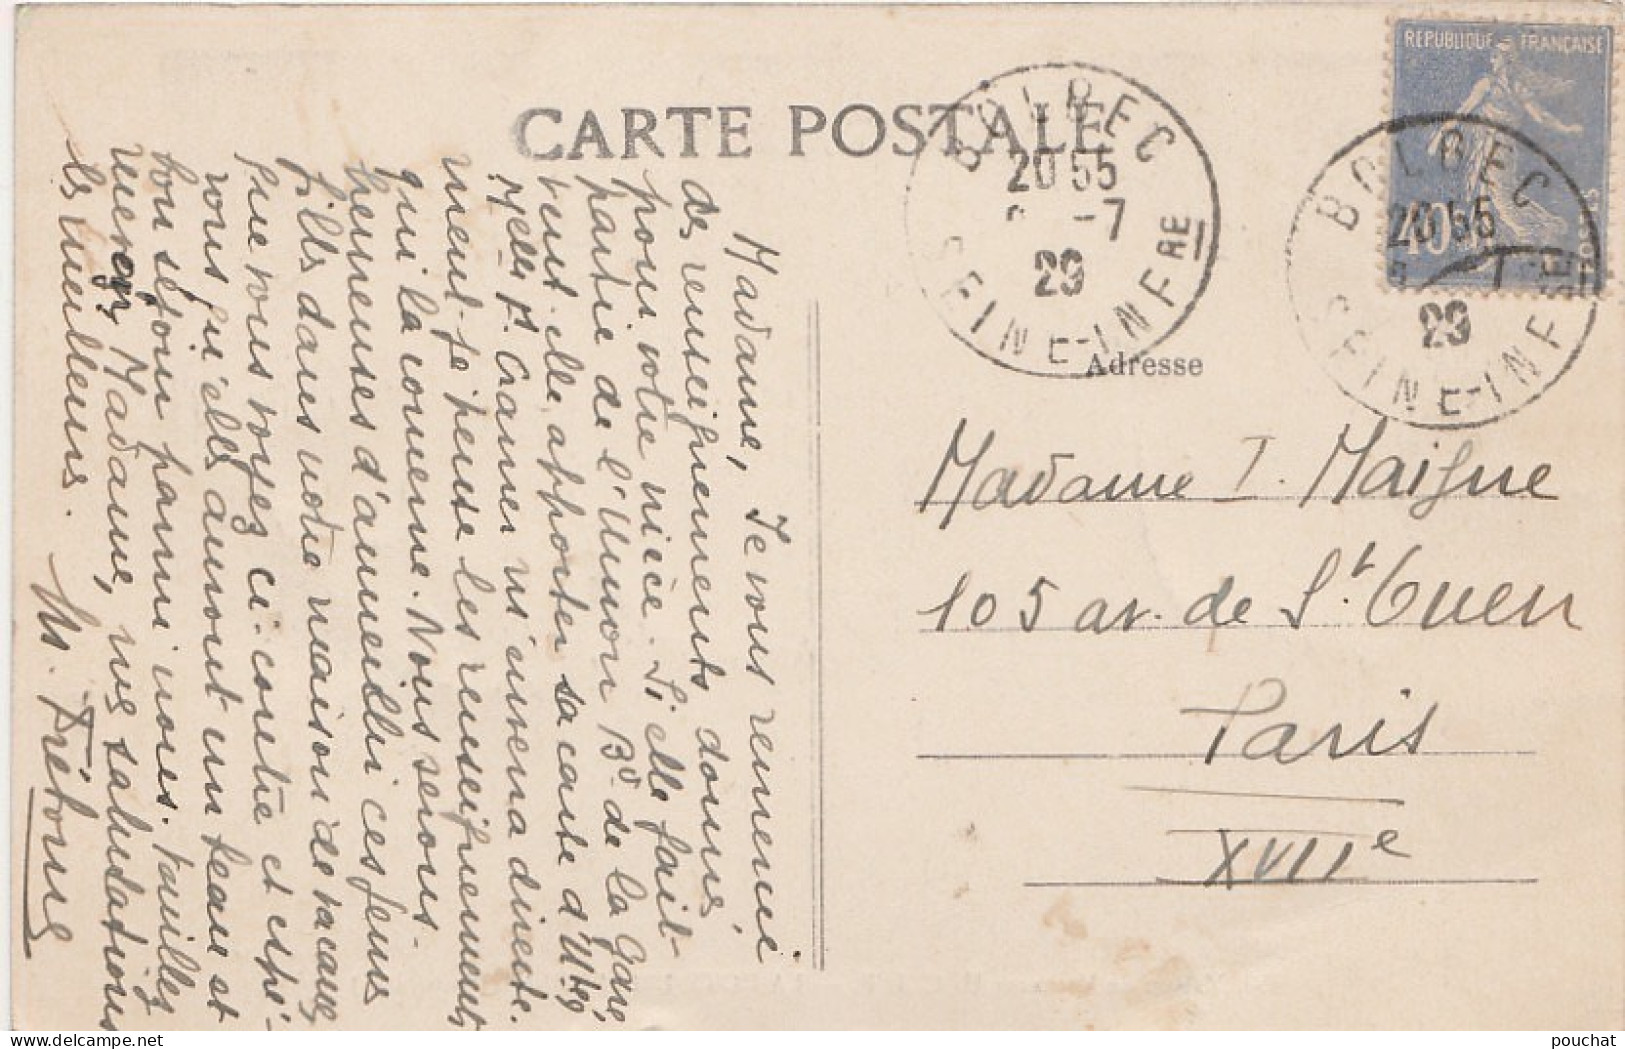 CARTE POSTALE
BOLBEC
20 55
-7
29
SEINE-INFRE
REPUBLIQUE FRANÇAISE
40
BOLBEC
20 55
29
SEINE-INFRE
Adresse
Madame I. Maigne
105 av. de St Ouen
Paris
XVIIe
Madame, Je vous remercie
des renseignements donnés
pour votre nièce. Si elle fait
partie de l'Union Bd de la Gare
veut-elle apporter sa carte d'
Melle A. Cramer m'enverra directe-
ment je pense les renseignements
qui la concerne. Nous serons
heureuses d'accueillir ces jeunes
filles dans notre maison de vacances
que vous voyez ci-contre et espé-
rons qu'elles auront un beau et
bon séjour parmi nous. Veuillez
recevoir Madame, mes salutations
les meilleures.